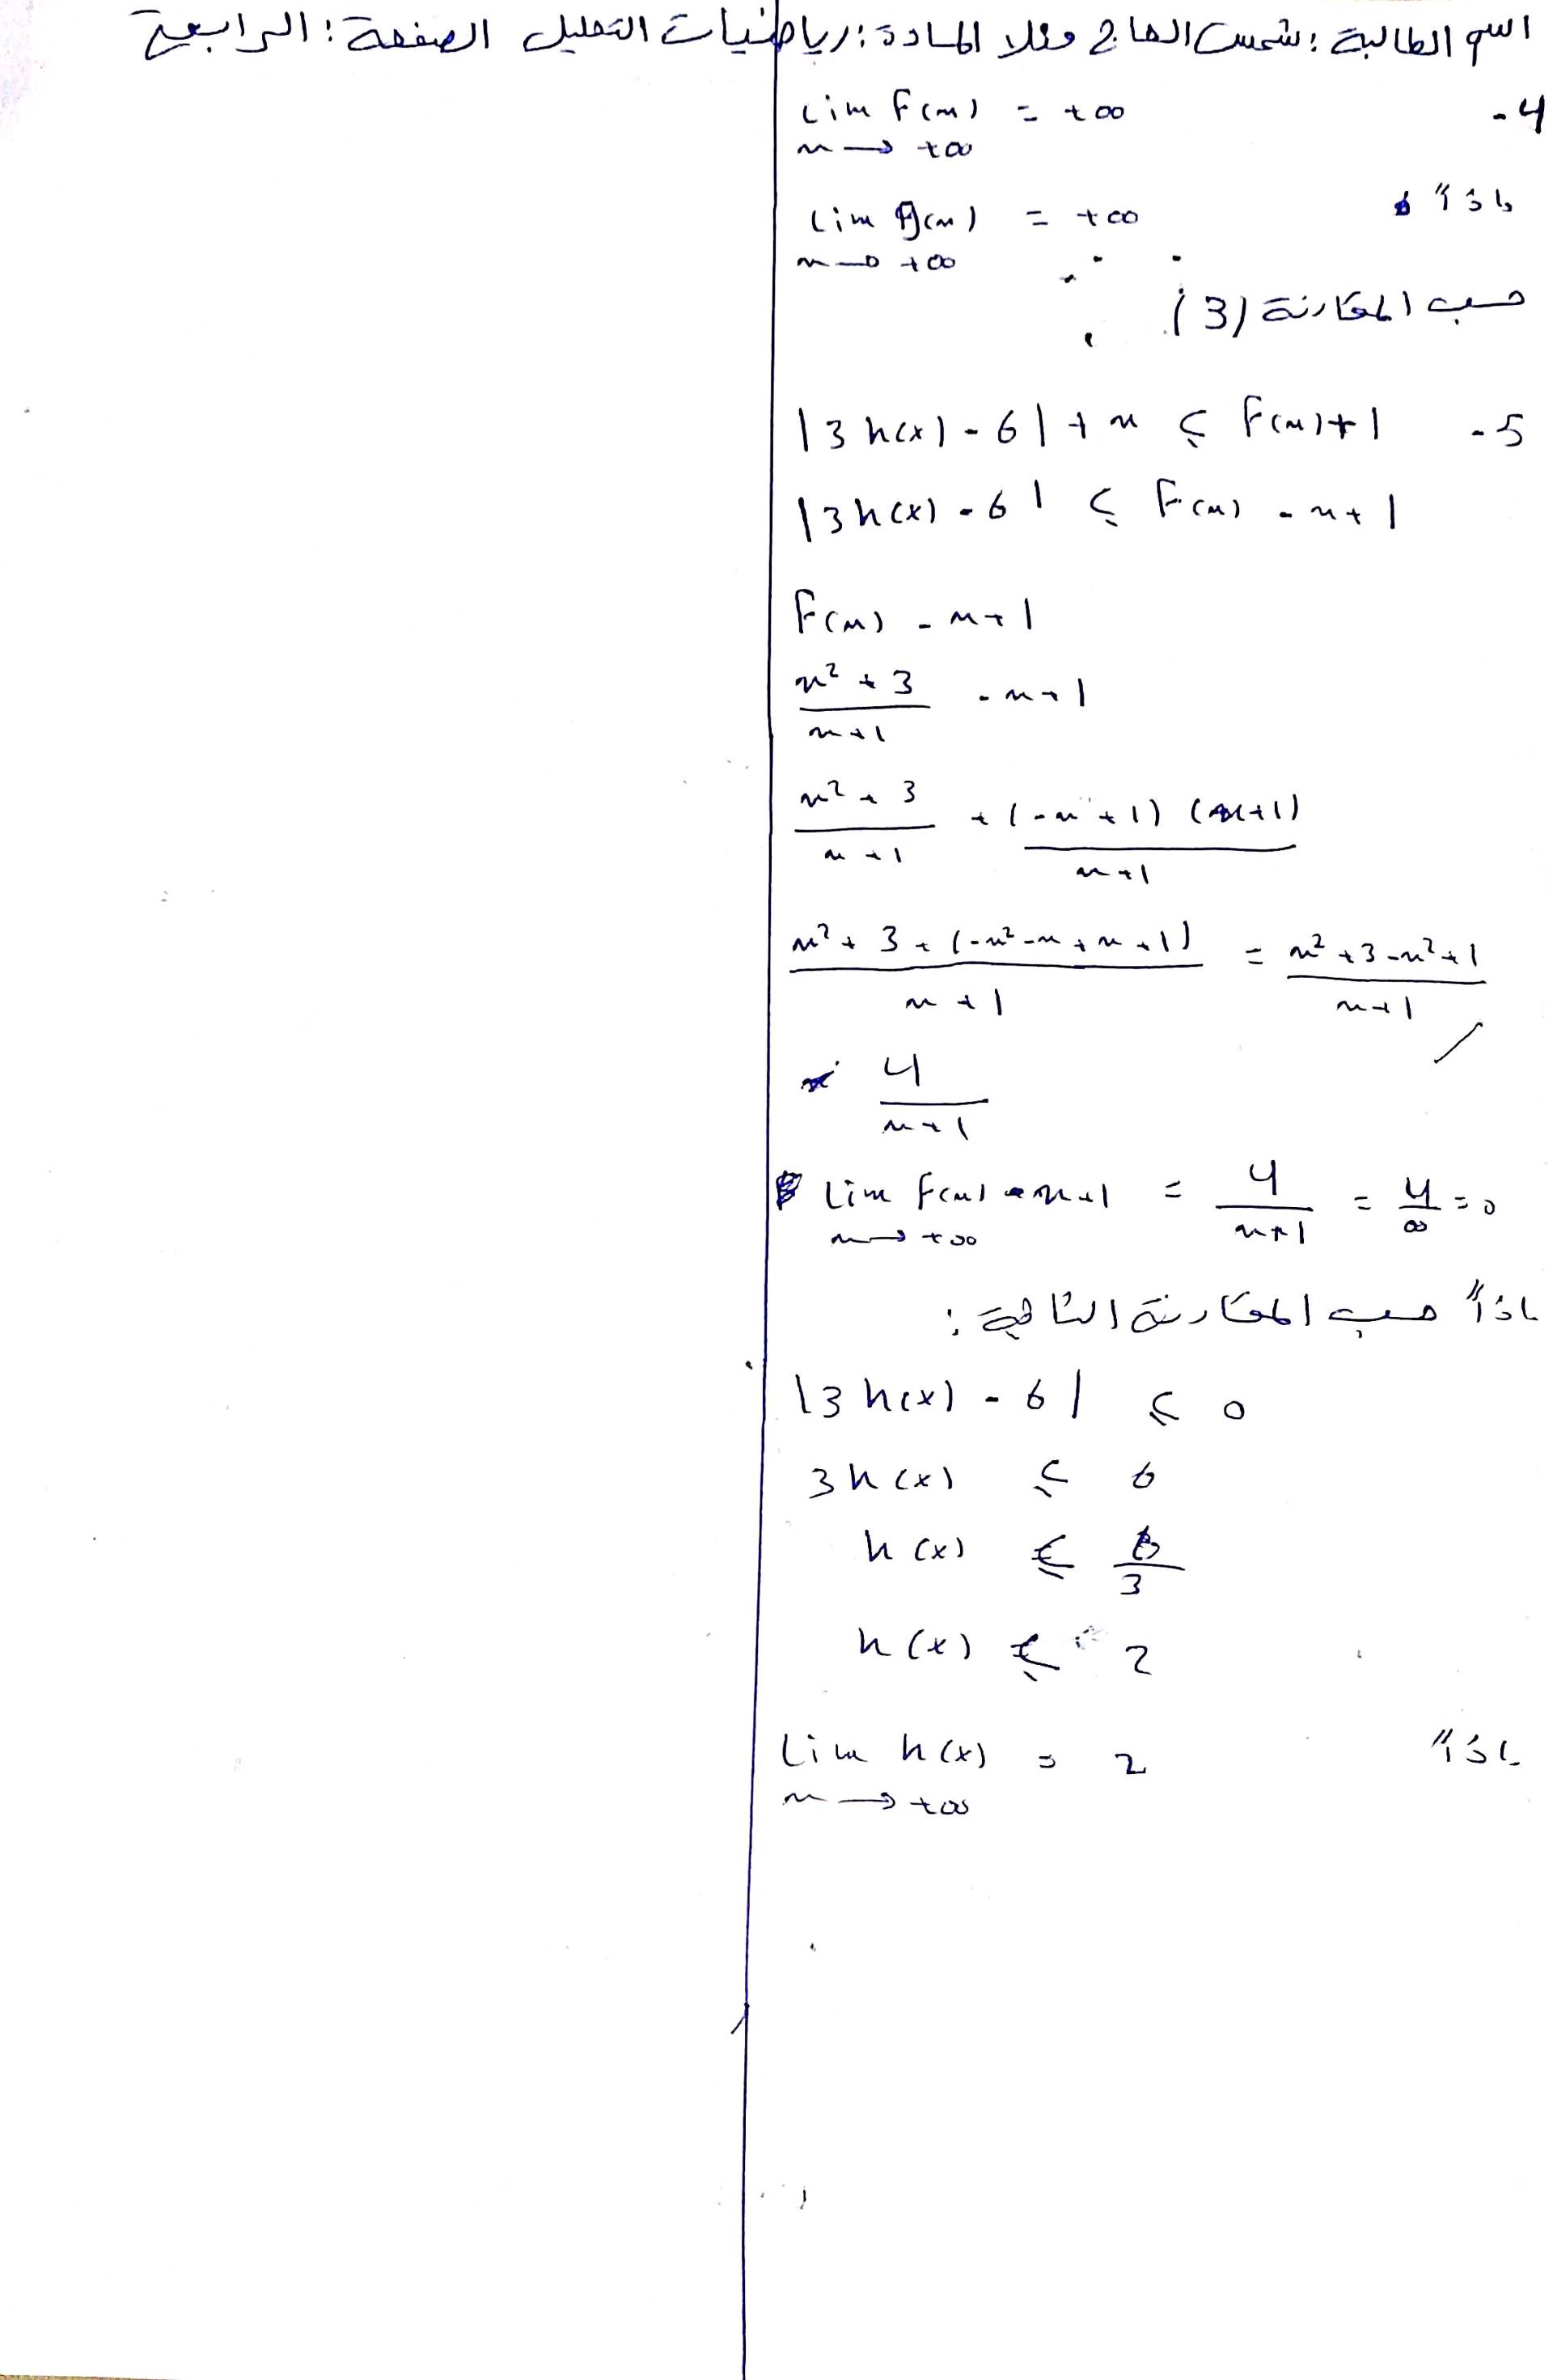 اسم الطالبة : شمس الحاج منلا المادة : رياضيات التحليل الصفحة : الرابعة
4- lim F(x) = +∞
x → +∞
إذاً lim g(x) = +∞
x → +∞
حسب المقارنة (3)
5- |3h(x) - 6| + x ≤ F(x) + 1
|3h(x) - 6| ≤ F(x) - x + 1
F(x) - x + 1
x² + 3 / x + 1 - x + 1
x² + 3 / x + 1 + (-x + 1) (x + 1) / x + 1
x² + 3 + (-x² - x + x + 1) / x + 1 = x² + 3 - x² + 1 / x + 1
4 / x + 1
lim F(x) - x + 1 = 4 / x + 1 = 4 / ∞ = 0
x → +∞
إذاً حسب المقارنة الثانية :
|3h(x) - 6| ≤ 0
3h(x) ≤ 6
h(x) ≤ 6 / 3
h(x) ≤ 2
إذاً lim h(x) = 2
x → +∞